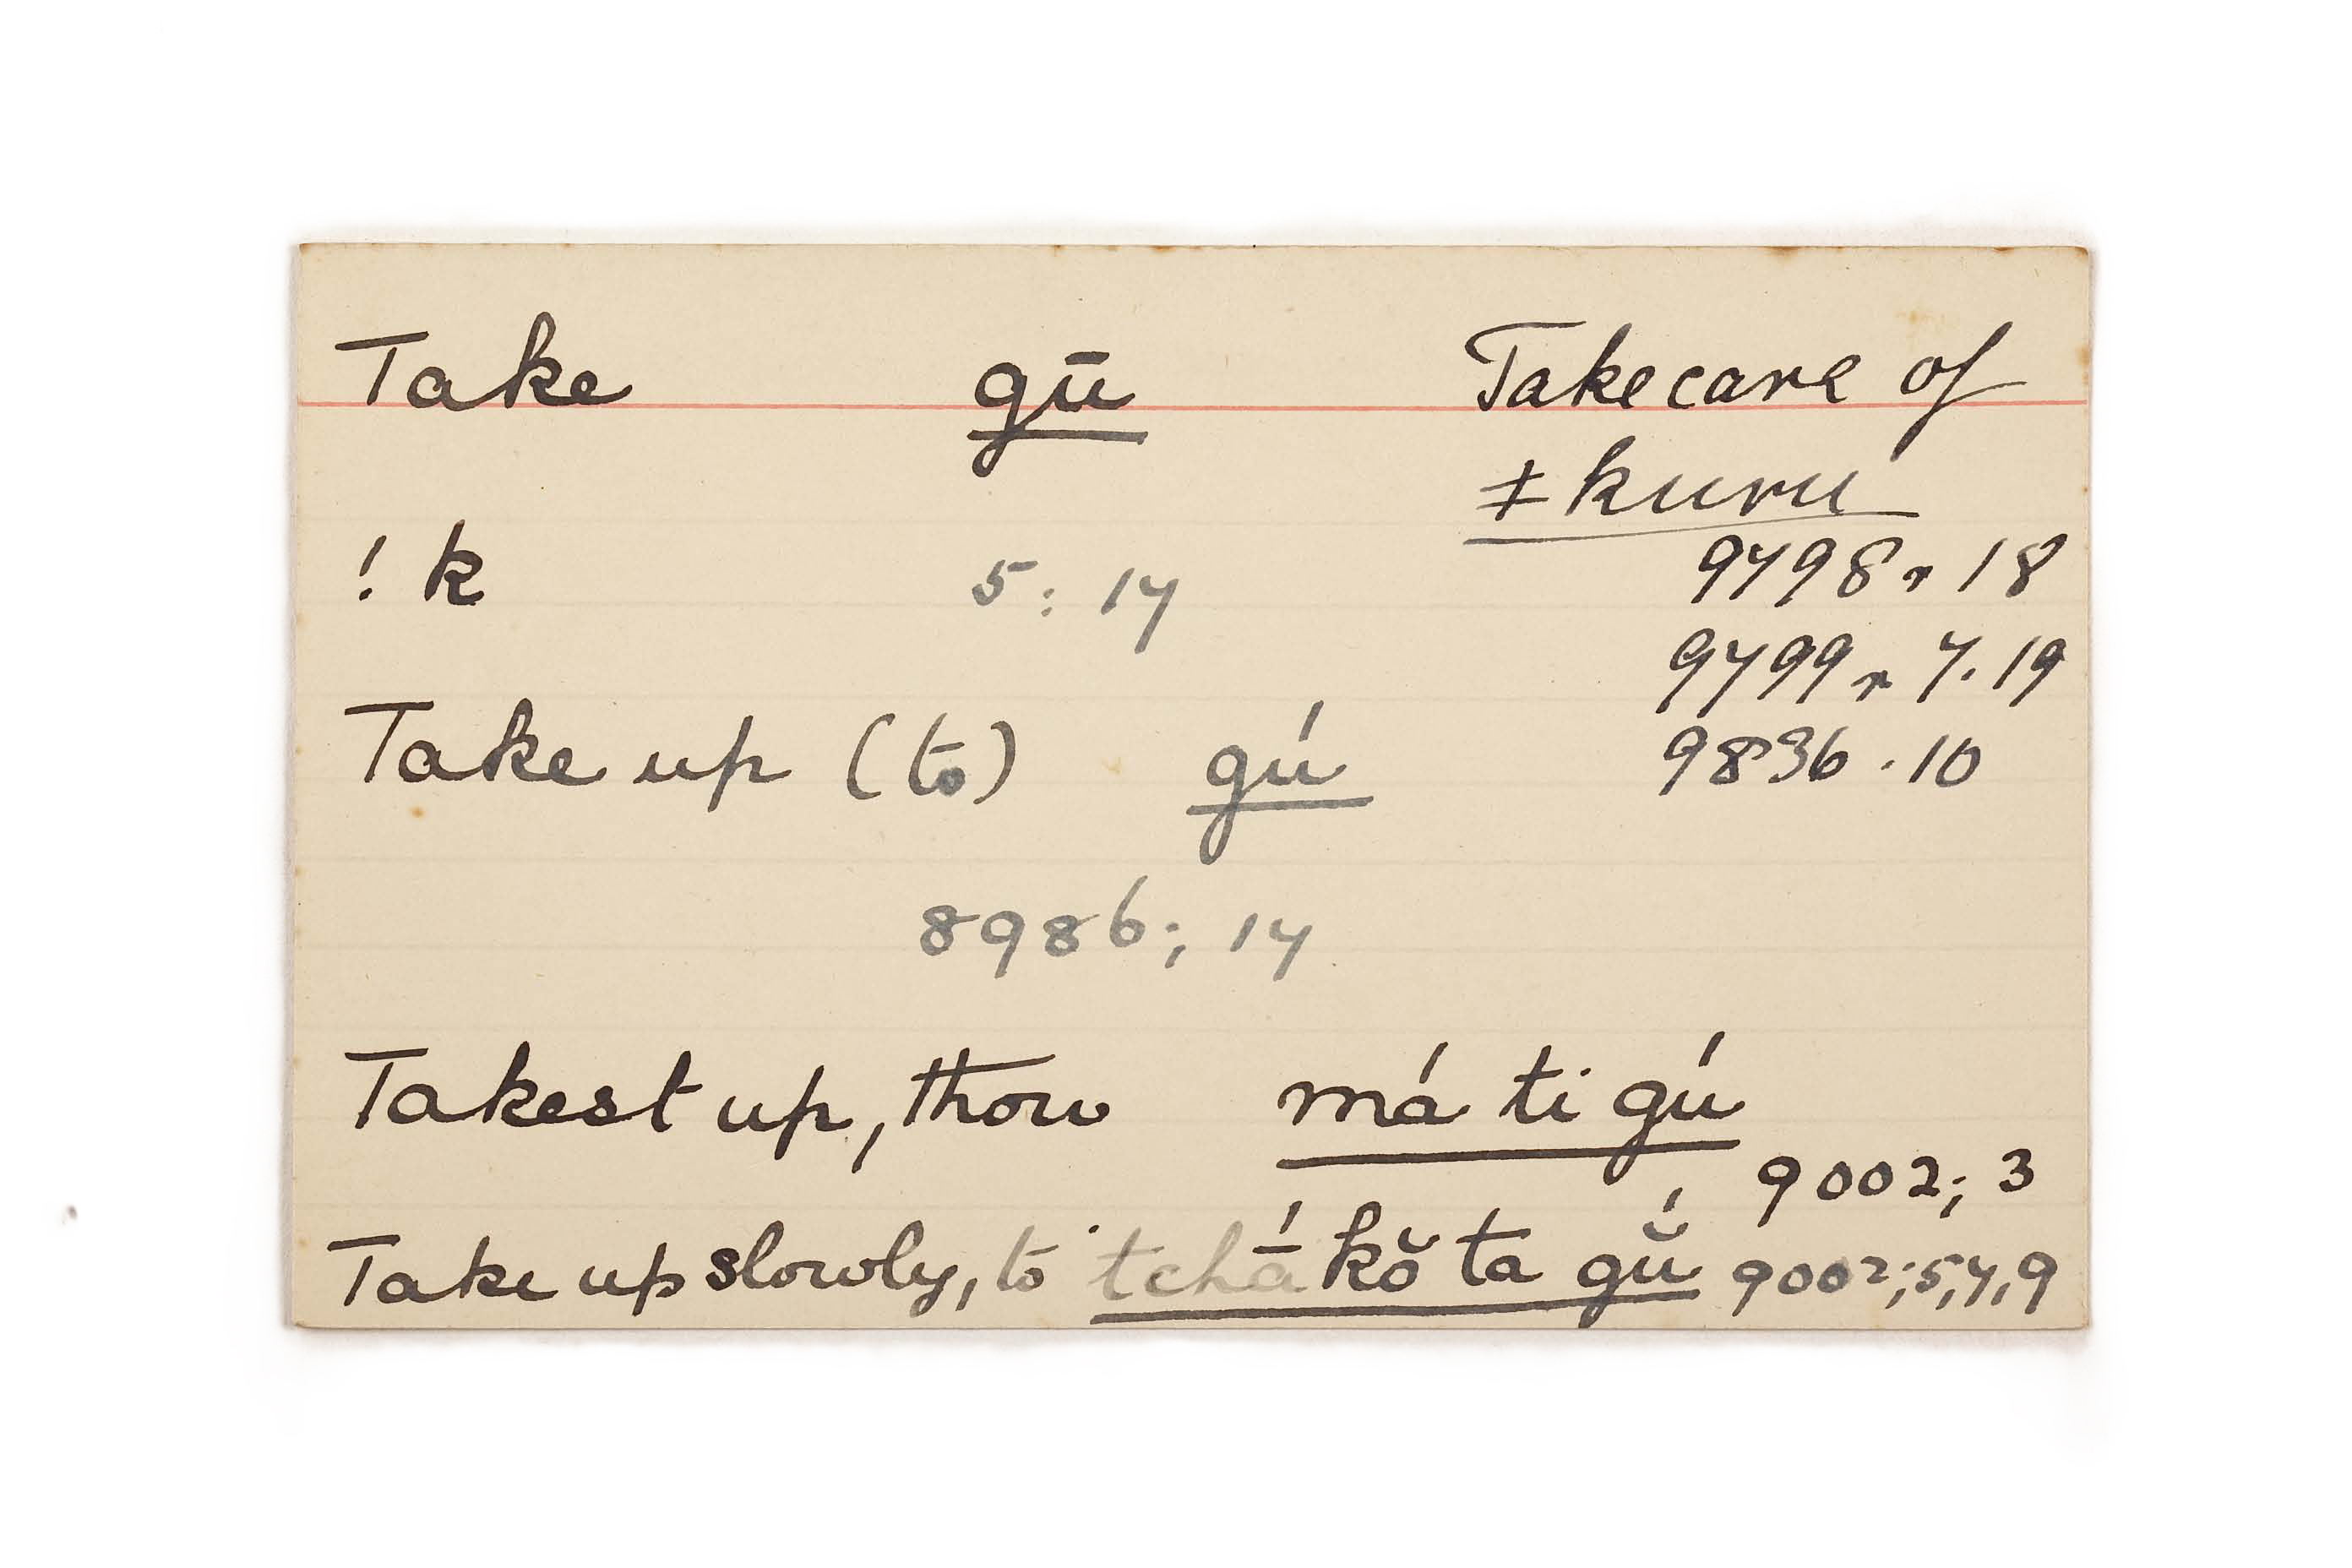 Take gū
! k 5: 17
Take up (to) gú
8986; 17
Takest up, thou má ti gú
9002; 3
Take up slowly, to tchā́ kŏ ta gŭ́ 9002; 5, 7, 9
Take care of
ǂkuru
9798 r 18
9799 r 7. 19
9836 . 10